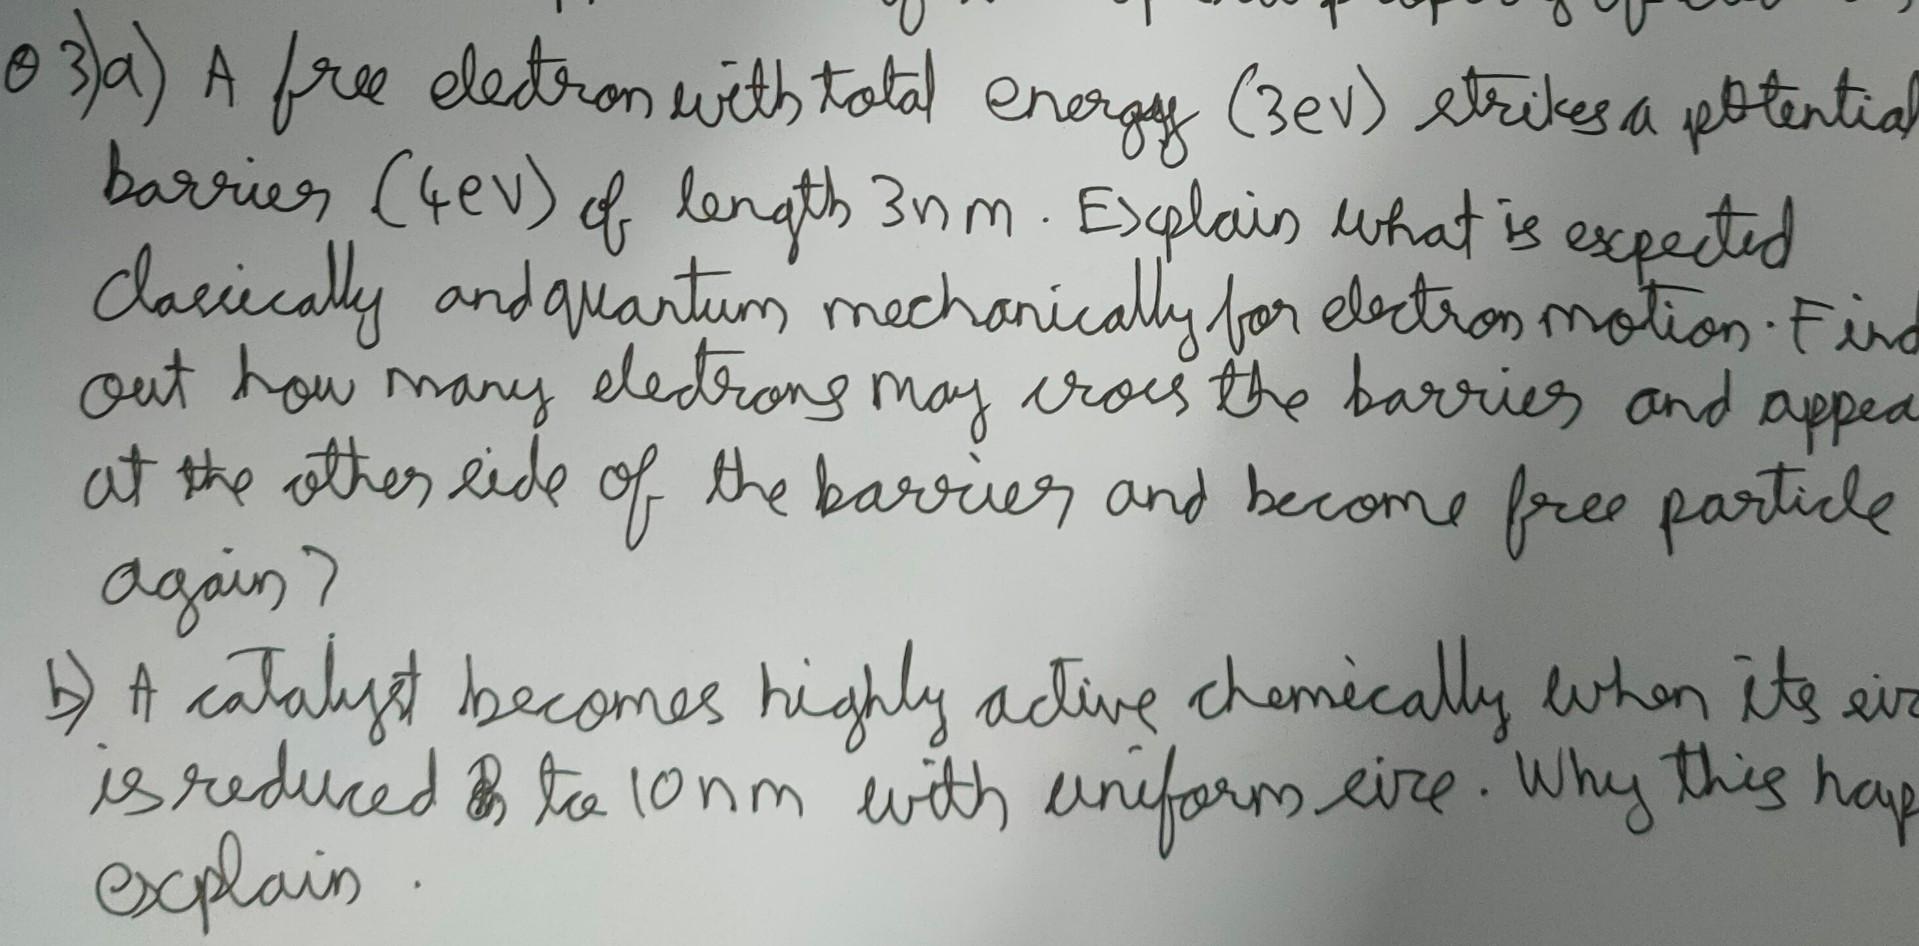 Q 3)a) A free electron with total energy (3eV) strikes a potential
barrier (4eV) of length 3nm. Explain what is expected
classically and quantum mechanically for electron motion. Find
out how many electrons may cross the barrier and appea
at the other side of the barrier and become free particle
again?
b) A catalyst becomes highly active chemically when its siz
is reduced to 10nm with uniform size. Why this hap
explain.